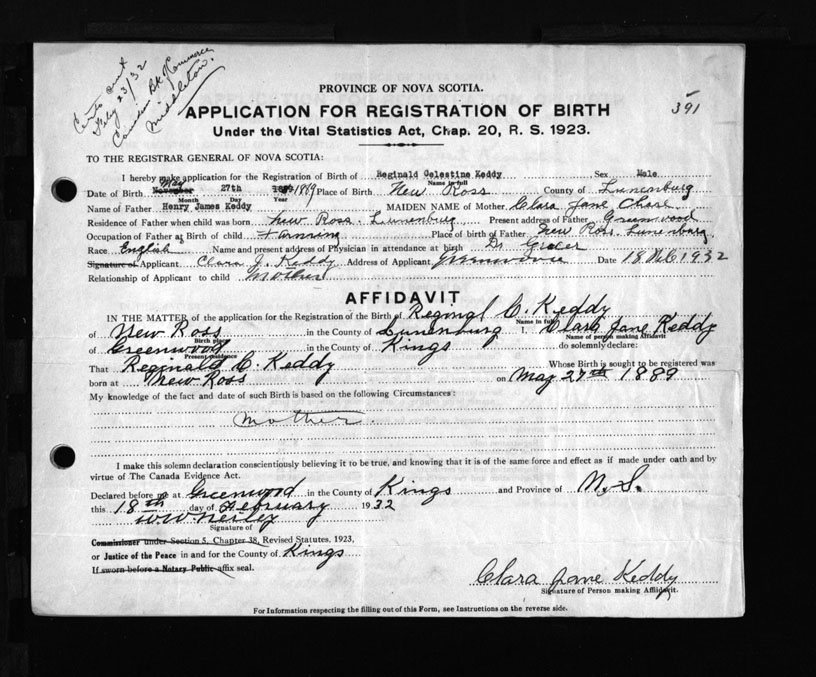 Certs sent
Feby 23/32
Canadian Bk of Commerce
Middleton.
PROVINCE OF NOVA SCOTIA.
391
APPLICATION FOR REGISTRATION OF BIRTH
Under the Vital Statistics Act, Chap. 20, R. S. 1923.
TO THE REGISTRAR GENERAL OF NOVA SCOTIA:
I hereby make application for the Registration of Birth of Reginald Celestine Keddy Sex Male
Name in full
Date of Birth May 27th Place of Birth New Ross County of Lunenburg
Month Day Year
Name of Father Henry James Keddy MAIDEN NAME of Mother Clara Jane
Residence of Father when child was born New Ross. Lunenburg Present address of Father Greenwood
Occupation of Father at Birth of child Farming Place of birth of Father New Ross. Lunenburg
Race English Name and present address of Physician in attendance at birth Dr.
Signature of Applicant Clara J. Keddy Address of Applicant Greenwood Date 18 Feb 1932
Relationship of Applicant to child Mother
AFFIDAVIT
IN THE MATTER of the application for the Registration of the Birth of Reginal C. Keddy
Name in full
of New Ross in the County of Lunenburg I, Clara Jane Keddy
Birth place Name of person making Affidavit
of Greenwood in the County of Kings do solemnly declare:
Present residence
That Reginald C. Keddy Whose Birth is sought to be registered was
born at New Ross on May 27th 1889
My knowledge of the fact and date of such Birth is based on the following Circumstances:
Mother.
I make this solemn declaration conscientiously believing it to be true, and knowing that it is of the same force and effect as if made under oath and by
virtue of The Canada Evidence Act.
Declared before me at Greenwood in the County of Kings and Province of N. S.
this 18th day of February 1932
Signature of
Commissioner under Section 5, Chapter 38, Revised Statutes, 1923,
or Justice of the Peace in and for the County of Kings
If sworn before a Notary Public affix seal.
Clara Jane Keddy
Signature of Person making Affidavit.
For Information respecting the filling out of this Form, see Instructions on the reverse side.